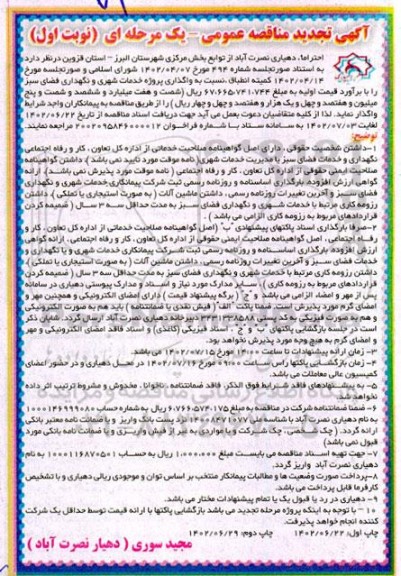 آگهی تجدید مناقصه عمومی - یک مرحله ای (نوبت اول)
احتراما، دهیاری نصرت آباد از توابع بخش مرکزی شهرستان البرز - استان قزوین درنظر دارد
به استناد صورتجلسه شماره ۴۹۴ مورخ ۱۴۰۲/۰۴/۰۷ شورای اسلامی و صورتجلسه مورخ
۱۴۰۲/۰۴/۱۴ کمیته انطباق، نسبت به واگذاری پروژه خدمات شهری و نگهداری فضای سبز
را با برآورد قیمت اولیه به مبلغ ۶۷.۶۶۵.۷۴۱.۷۴۴ ریال (شصت و هفت میلیارد و ششصد و شصت و پنج
میلیون و هفتصد و چهل و یک هزار و هفتصد و چهل و چهار ریال) را از طریق مناقصه به پیمانکاران واجد شرایط
واگذار نماید. لذا از کلیه متقاضیان دعوت بعمل می آید جهت دریافت اسناد مناقصه از تاریخ ۱۴۰۲/۰۶/۲۲
لغایت ۱۴۰۲/۰۷/۰۳ به سامانه ستاد با شماره فراخوان ۲۰۰۲۰۹۵۸۴۶۰۰۰۰۱۲ مراجعه نمایند.
توضیح:
۱-داشتن شخصیت حقوقی، دارای اصل گواهینامه صلاحیت خدماتی از اداره کل تعاون، کار و رفاه اجتماعی
نگهداری و خدمات فضای سبز یا مدیریت خدمات شهری (نامه موقت مورد تایید نمی باشد) داشتن گواهینامه
صلاحیت ایمنی حقوقی از اداره کل تعاون، کار و رفاه اجتماعی (نامه موقت مورد پذیرش نمی باشد)، ارائه
گواهی ارزش افزوده، بارگذاری اساسنامه و روزنامه رسمی ثبت شرکت پیمانکاری خدمات شهری و نگهداری
فضای سبز و آخرین تغییرات روزنامه رسمی، داشتن ماشین آلات (به صورت استیجاری یا تملکی)، داشتن
رزومه کاری مرتبط با خدمات شهری و نگهداری فضای سبز به مدت حداقل سه ۳ سال (ضمیمه کردن
قراردادهای مربوط به رزومه کاری الزامی می باشد)
۲-صرفا بارگذاری اسناد پاکتهای پیشنهادی "ب" (اصل گواهینامه صلاحیت خدماتی از اداره کل تعاون، کار و
رفاه اجتماعی، اصل گواهینامه صلاحیت ایمنی حقوقی از اداره کل تعاون، کار و رفاه اجتماعی، ارائه گواهی
ارزش افزوده، بارگذاری اساسنامه و روزنامه رسمی ثبت شرکت پیمانکاری خدمات شهری و یا نگهداری و
خدمات فضای سبز و آخرین تغییرات روزنامه رسمی، داشتن ماشین آلات (به صورت استیجاری یا تملکی)،
داشتن رزومه کاری مرتبط با خدمات شهری و نگهداری فضای سبز به مدت حداقل سه ۳ سال (ضمیمه کردن
قراردادهای مربوط به رزومه کاری) سایر مدارک مورد نیاز و اسناد و مدارک پیوستی دهیاری در سامانه
پس از مهر و امضاء الزامی می باشد و "ج" (برگه پیشنهاد قیمت) دارای امضای الکترونیکی و همچنین مهر و
امضای گرم مورد پذیرش است. ضمنا پاکت "الف" (فیش نقدی یا ضمانتنامه) باید هم به صورت الکترونیکی
و هم به صورت فیزیکی به کد پستی ۳۴۳۱۳۳۸۵۸۸ دبیرخانه دهیاری نصرت آباد ارسال گردد. شایان ذکر
است در جلسه بازگشایی پاکتهای "ب" و "ج"، اسناد فیزیکی (کاغذی) و اسناد فاقد امضای الکترونیکی و مهر
و امضای گرم به هیچ وجه مورد پذیرش نخواهد بود.
۳- زمان ارائه پیشنهادات تا ساعت ۱۴:۰۰ مورخ ۱۴۰۲/۰۷/۱۵ می باشد.
۴- زمان بازگشایی پاکتها راس ساعت ۰۹:۰۰ مورخ ۱۴۰۲/۰۷/۱۶ در محل دهیاری و در حضور اعضای
کمیسیون عالی معاملات می باشد.
۵- به پیشنهادهای فاقد شرایط فوق الذکر، فاقد ضمانتنامه، ناخوانا، مخدوش و مشروط ترتیب اثر داده
نخواهد شد.
۶- ضمنا ضمانتنامه شرکت در مناقصه به مبلغ ۶.۷۶۶.۵۷۴.۱۷۵ ریال به شماره حساب ۱۰۰۰۱۴۶۹۹۹۰۸۰
به نام دهیاری نصرت آباد با شناسه ملی ۱۴۰۰۵۸۴۷۱۰۷۷ نزد پست بانک واریز و یا ضمانت نامه معتبر بانکی
ارائه گردد. (چک شخصی، چک شرکت و یا مواردی به غیر از فیش واریزی و یا ضمانت نامه بانکی مورد
قبول نمی باشد)
۷- جهت تهیه اسناد مناقصه می بایست مبلغ ۱.۰۰۰.۰۰۰ ریال به حساب ۱۰۰۰۱۱۶۸۷۰۵۰۱ به نام
دهیاری نصرت آباد واریز گردد.
۸-پرداخت صورت وضعیت ها و مطالبات پیمانکار منتخب بر اساس توان و موجودی ریالی دهیاری و با تشخیص
کارفرما قابل پرداخت می باشد.
۹- دهیاری در رد یا قبول یک یا تمام پیشنهادات مختار می باشد.
۱۰- با توجه به اینکه پروژه مرحله تجدید می باشد بازگشایی پاکتها با ارائه قیمت توسط حداقل یک شرکت
کننده انجام خواهد پذیرفت.
چاپ اول: ۱۴۰۲/۰۶/۲۲ چاپ دوم: ۱۴۰۲/۰۶/۲۹
مجید سوری (دهیار نصرت آباد)